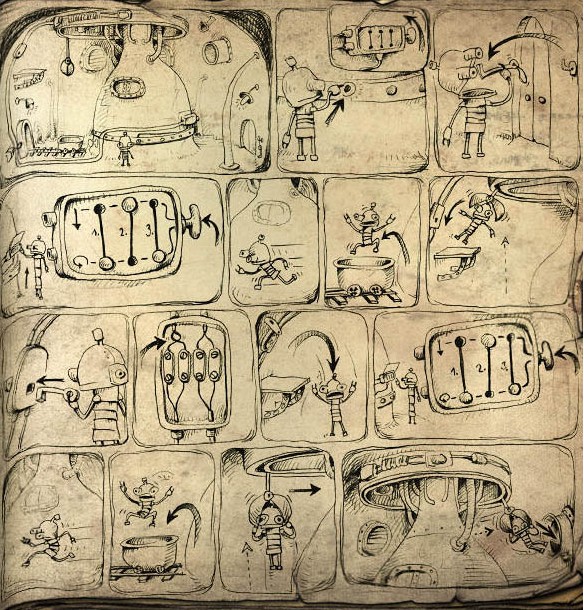 1. 2. 3.
1. 2. 3.